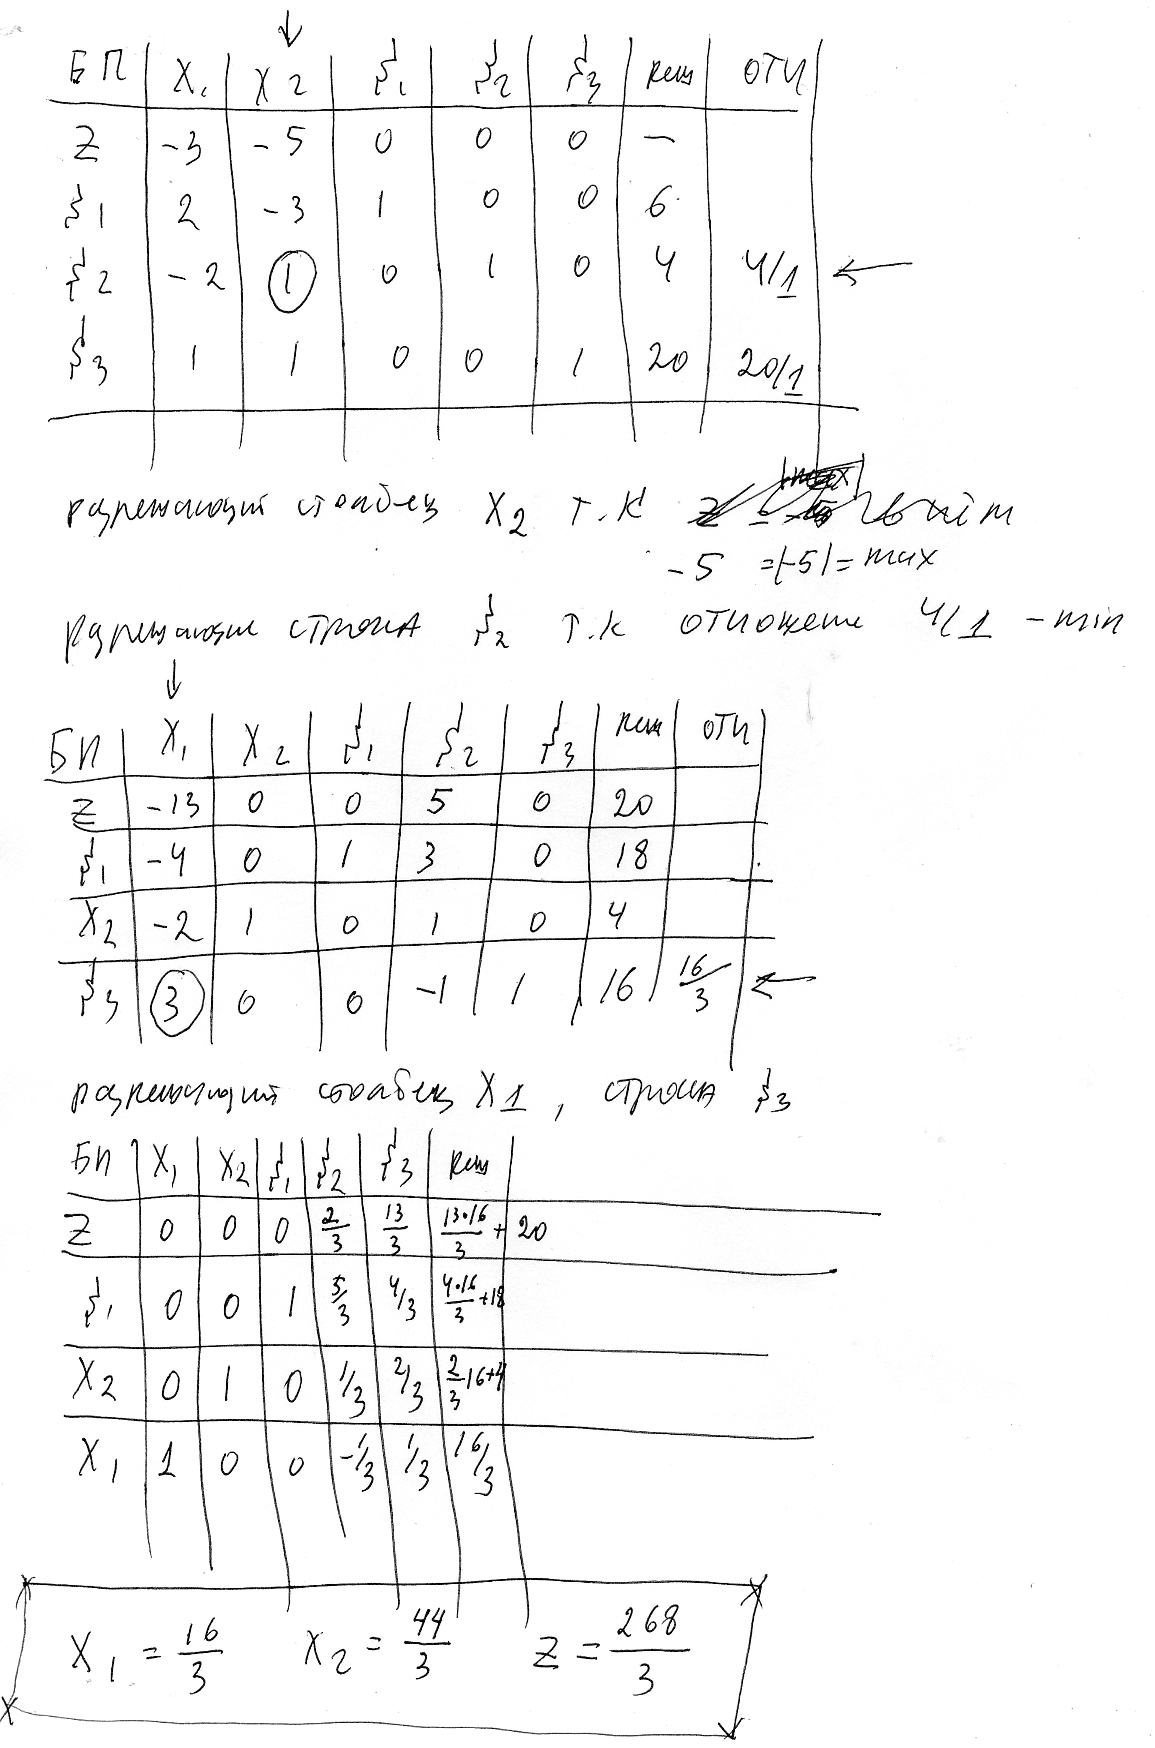 БП X₁ X2 ξ₁ ξ₂ ξ₃ реш отн
Z -3 -5 0 0 0 —
ξ1 2 -3 1 0 0 6
ξ2 -2 1 0 1 0 4 4/1
ξ3 1 1 0 0 1 20 20/1
разрешающий столбец X₂ т.к
-5 =|-5|=max
разрешающие строка ξ₂ т.к отношение 4/1 - min
БП X₁ X₂ ξ₁ ξ₂ ξ₃ реш отн
Z -13 0 0 5 0 20
ξ₁ -4 0 1 3 0 18
X₂ -2 1 0 1 0 4
ξ₃ 3 0 0 -1 1 16 16/3
разрешающий столбец X1, строка ξ₃
БП X₁ X₂ ξ₁ ξ₂ ξ₃ реш
Z 0 0 0 2/3 13/3 13·16/3 + 20
ξ₁ 0 0 1 5/3 4/3 4·16/3 +18
X₂ 0 1 0 1/3 2/3 2/3·16+4
X₁ 1 0 0 -1/3 1/3 16/3
X₁ = 16/3 X₂ = 44/3 Z = 268/3